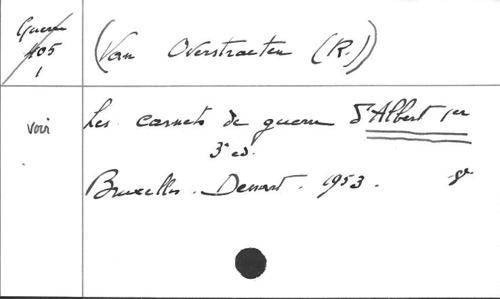 Guerre
405
1
(Van Overstraeten (R.))
voir
Les carnets de guerre d'Albert 1er
3e ed.
Bruxelles. Dessart. 1953.
8°